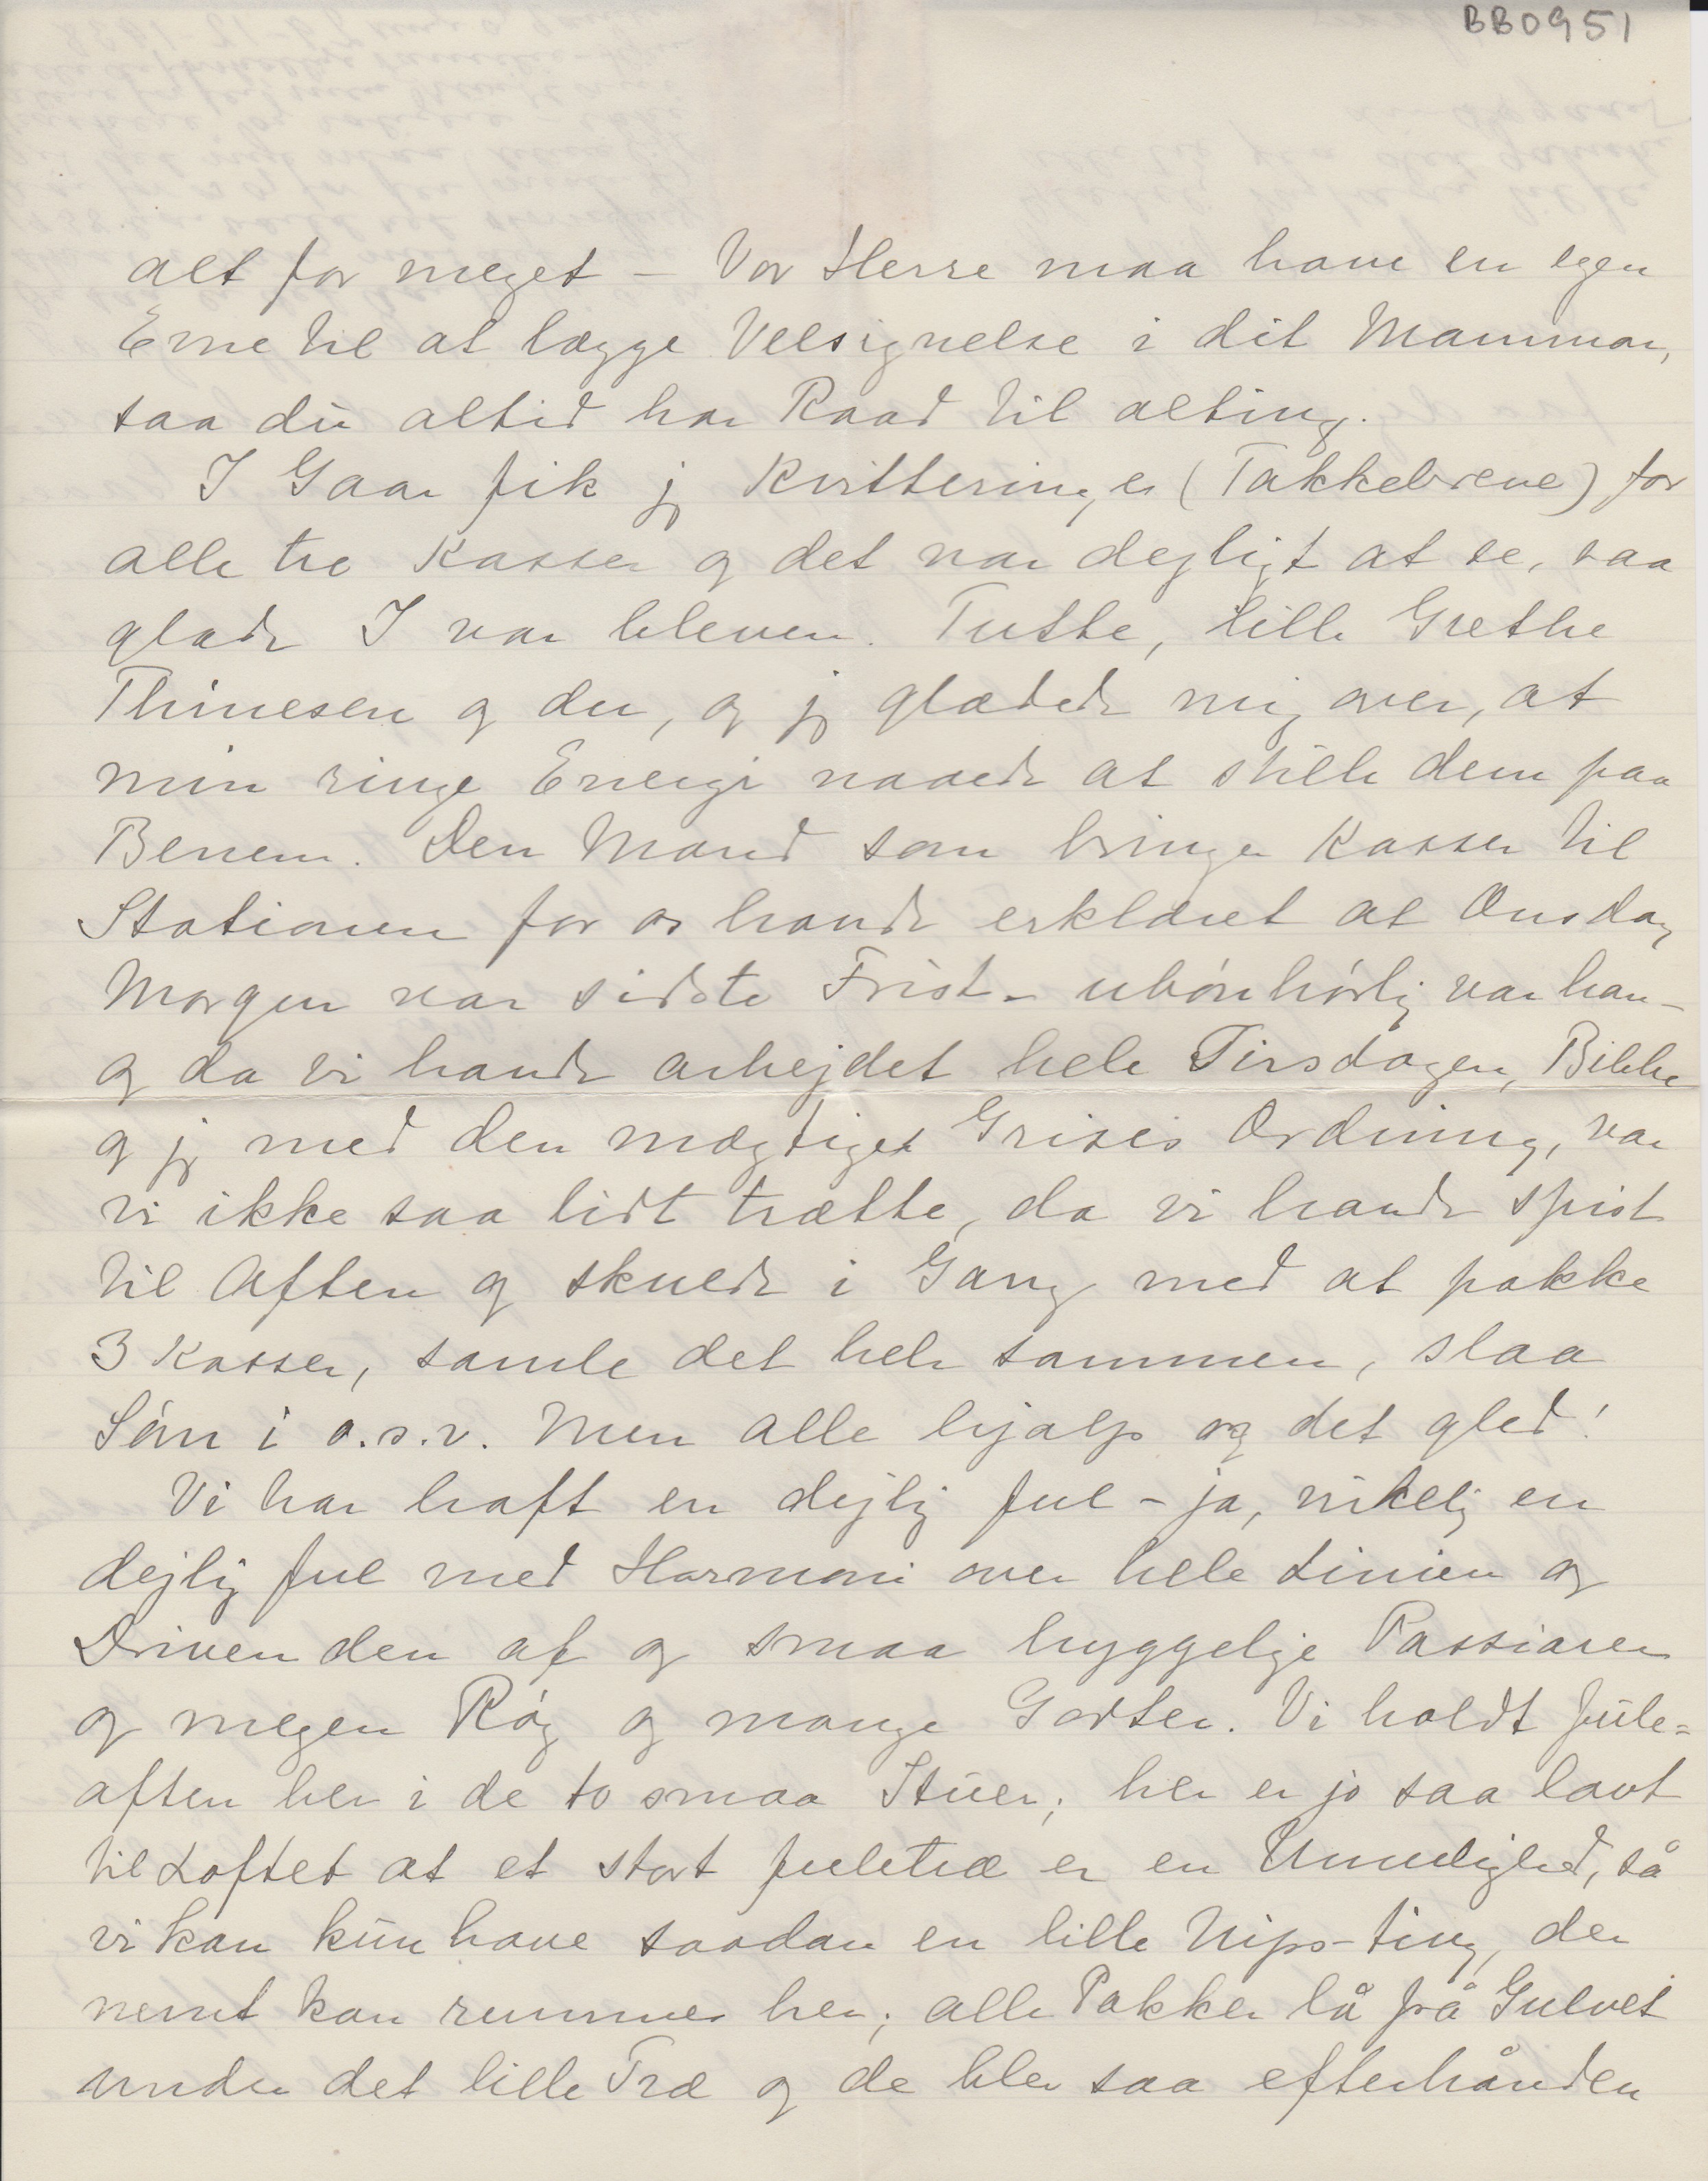 BB0951
alt for meget – Vor Herre maa have en egen
Evne til at lægge Velsignelse i dit Mammon,
saa du altid har Raad til alting.
I Gaar fik jg Kvitteringer (Takkebreve) for
alle tre Kasser og det var dejligt at se, saa
glade I var bleven. Tutte, lille Grethe
Thinesen og du, og jg glædede mig over, at
min ringe Energi naaede at stille dem paa
Benene. Den Mand som bringer Kasser til
Stationen for os havde erklæret at Onsdag
Morgen var sidste Frist – ubönhörlig var han –
og da vi havde arbejdet hele Tirsdagen, Bibbe
og jg med den mægtige Grises Ordning, var
vi ikke saa lidt trætte, da vi havde spist
til Aften og skulde i Gang med at pakke
3 Kasser, samle det hele sammen, slaa
Söm i o.s.v. Men alle hjalp og det gled!
Vi har haft en dejlig Jul – ja, virkelig en
dejlig Jul med Harmoni over hele Linien og
Driven den af og smaa hyggelige Passiarer
og megen Røg og mange Godter. Vi holdt Jule=
aften her i de to smaa Stuer; her er jo saa lavt
til Loftet at et stort Juletræ er en Umulighed, så
vi kan kun have saadan en lille Nips-ting, der
nemt kan rummes her; alle Pakker lå på Gulvet
under det lille Træ og de blev saa efterhånden